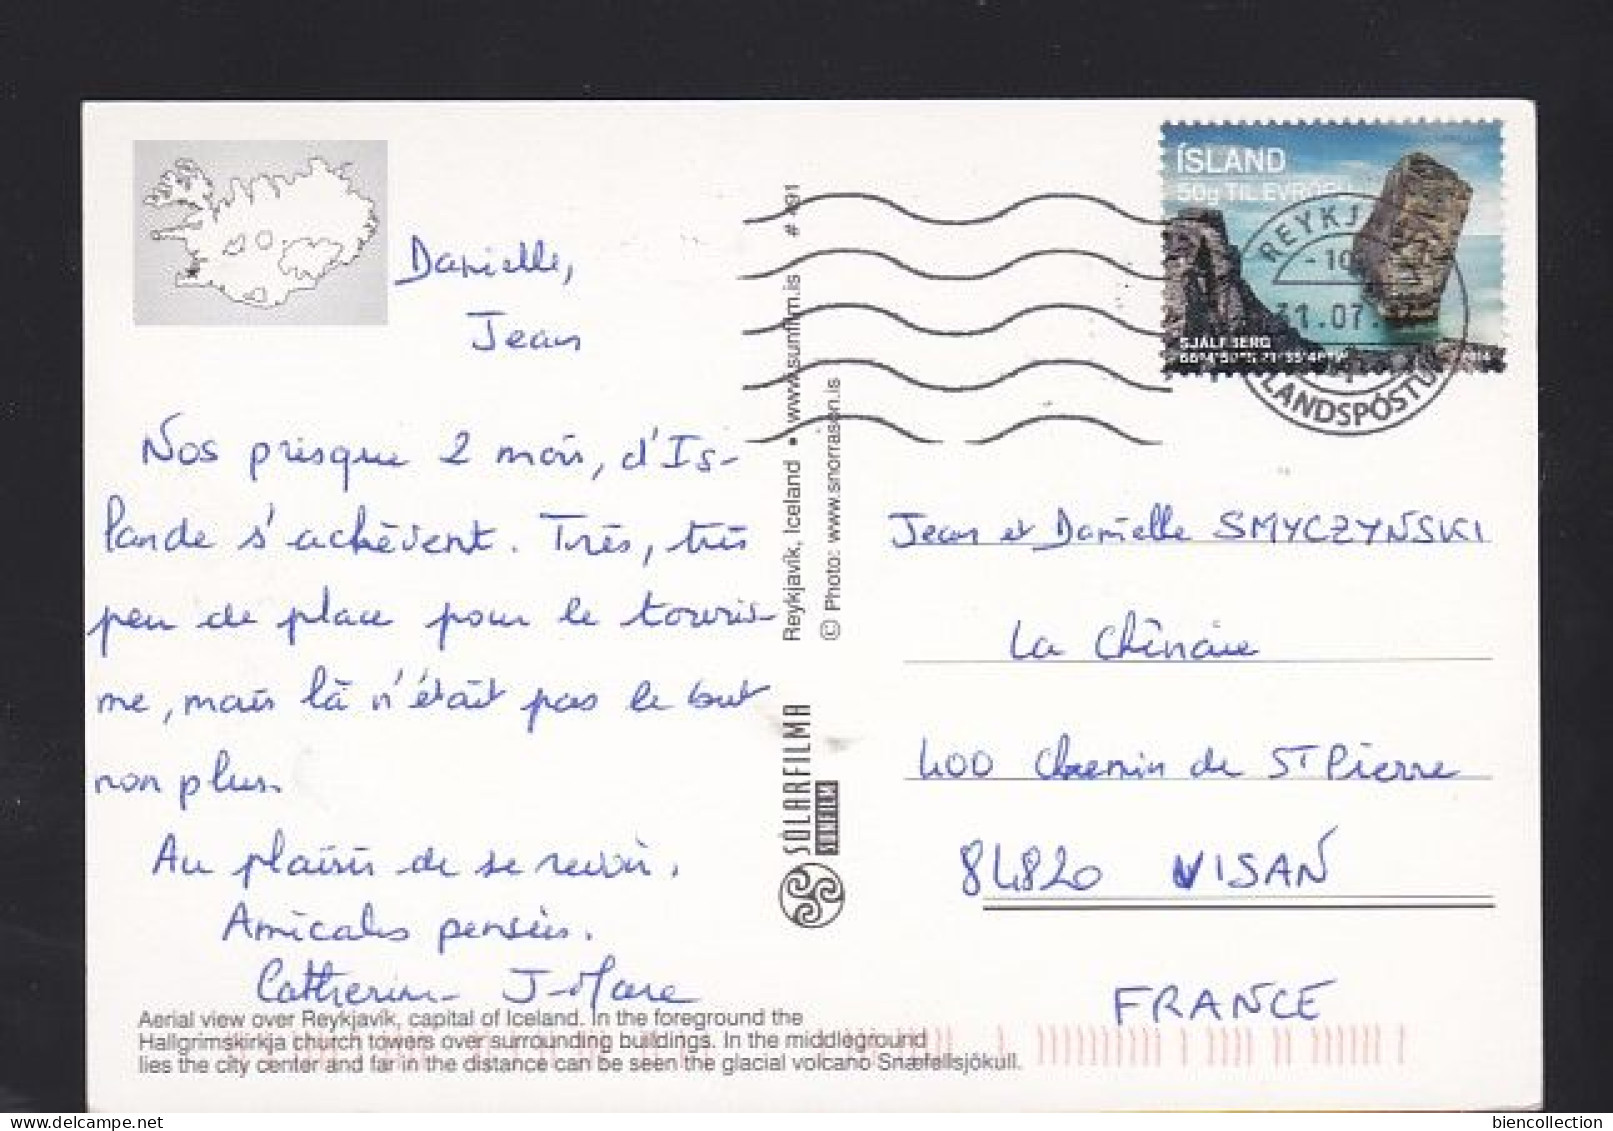 ÍSLAND
50g TIL EVRÓPU
REYKJ
- 10
31.07.
SJÁLFBERG
ÍSLANDSPÓSTU
# 491
Reykjavík, Iceland • www.sunfilm.is
© Photo: www.snorrason.is
SÓLARFILMA
SUNFILM
Danielle,
Jean
Nos presque 2 mois, d'Is-
lande s'achèvent. Très, très
peu de place pour le touris-
me, mais là n'était pas le but
non plus.
Au plaisir de se revoir,
Amicales pensées.
Catherine J-Marc
Jean et Danielle SMYCZYŃSKI
La Chênaie
400 Chemin de ST Pierre
84820 VISAN
FRANCE
Aerial view over Reykjavík, capital of Iceland. In the foreground the
Hallgrimskirkja church towers over surrounding buildings. In the middleground
lies the city center and far in the distance can be seen the glacial volcano Snæfellsjökull.
biencollection